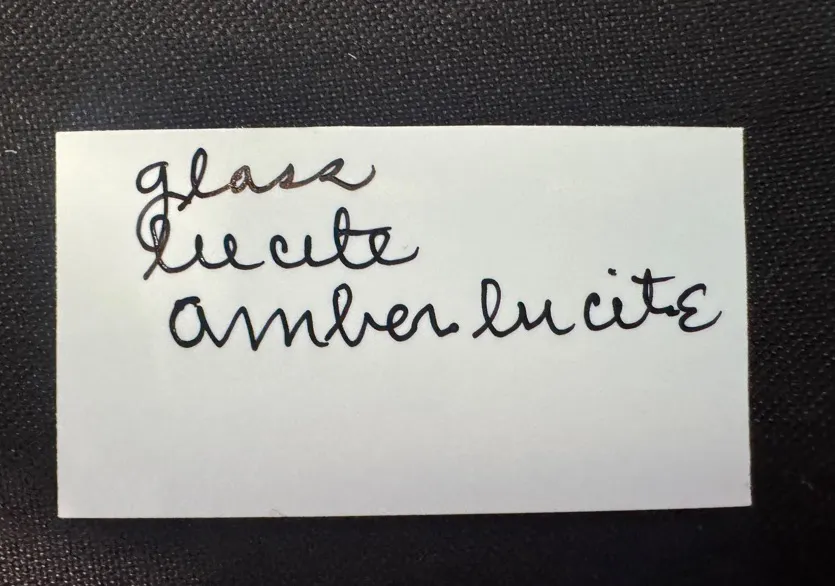 glass
lucite
amber lucite